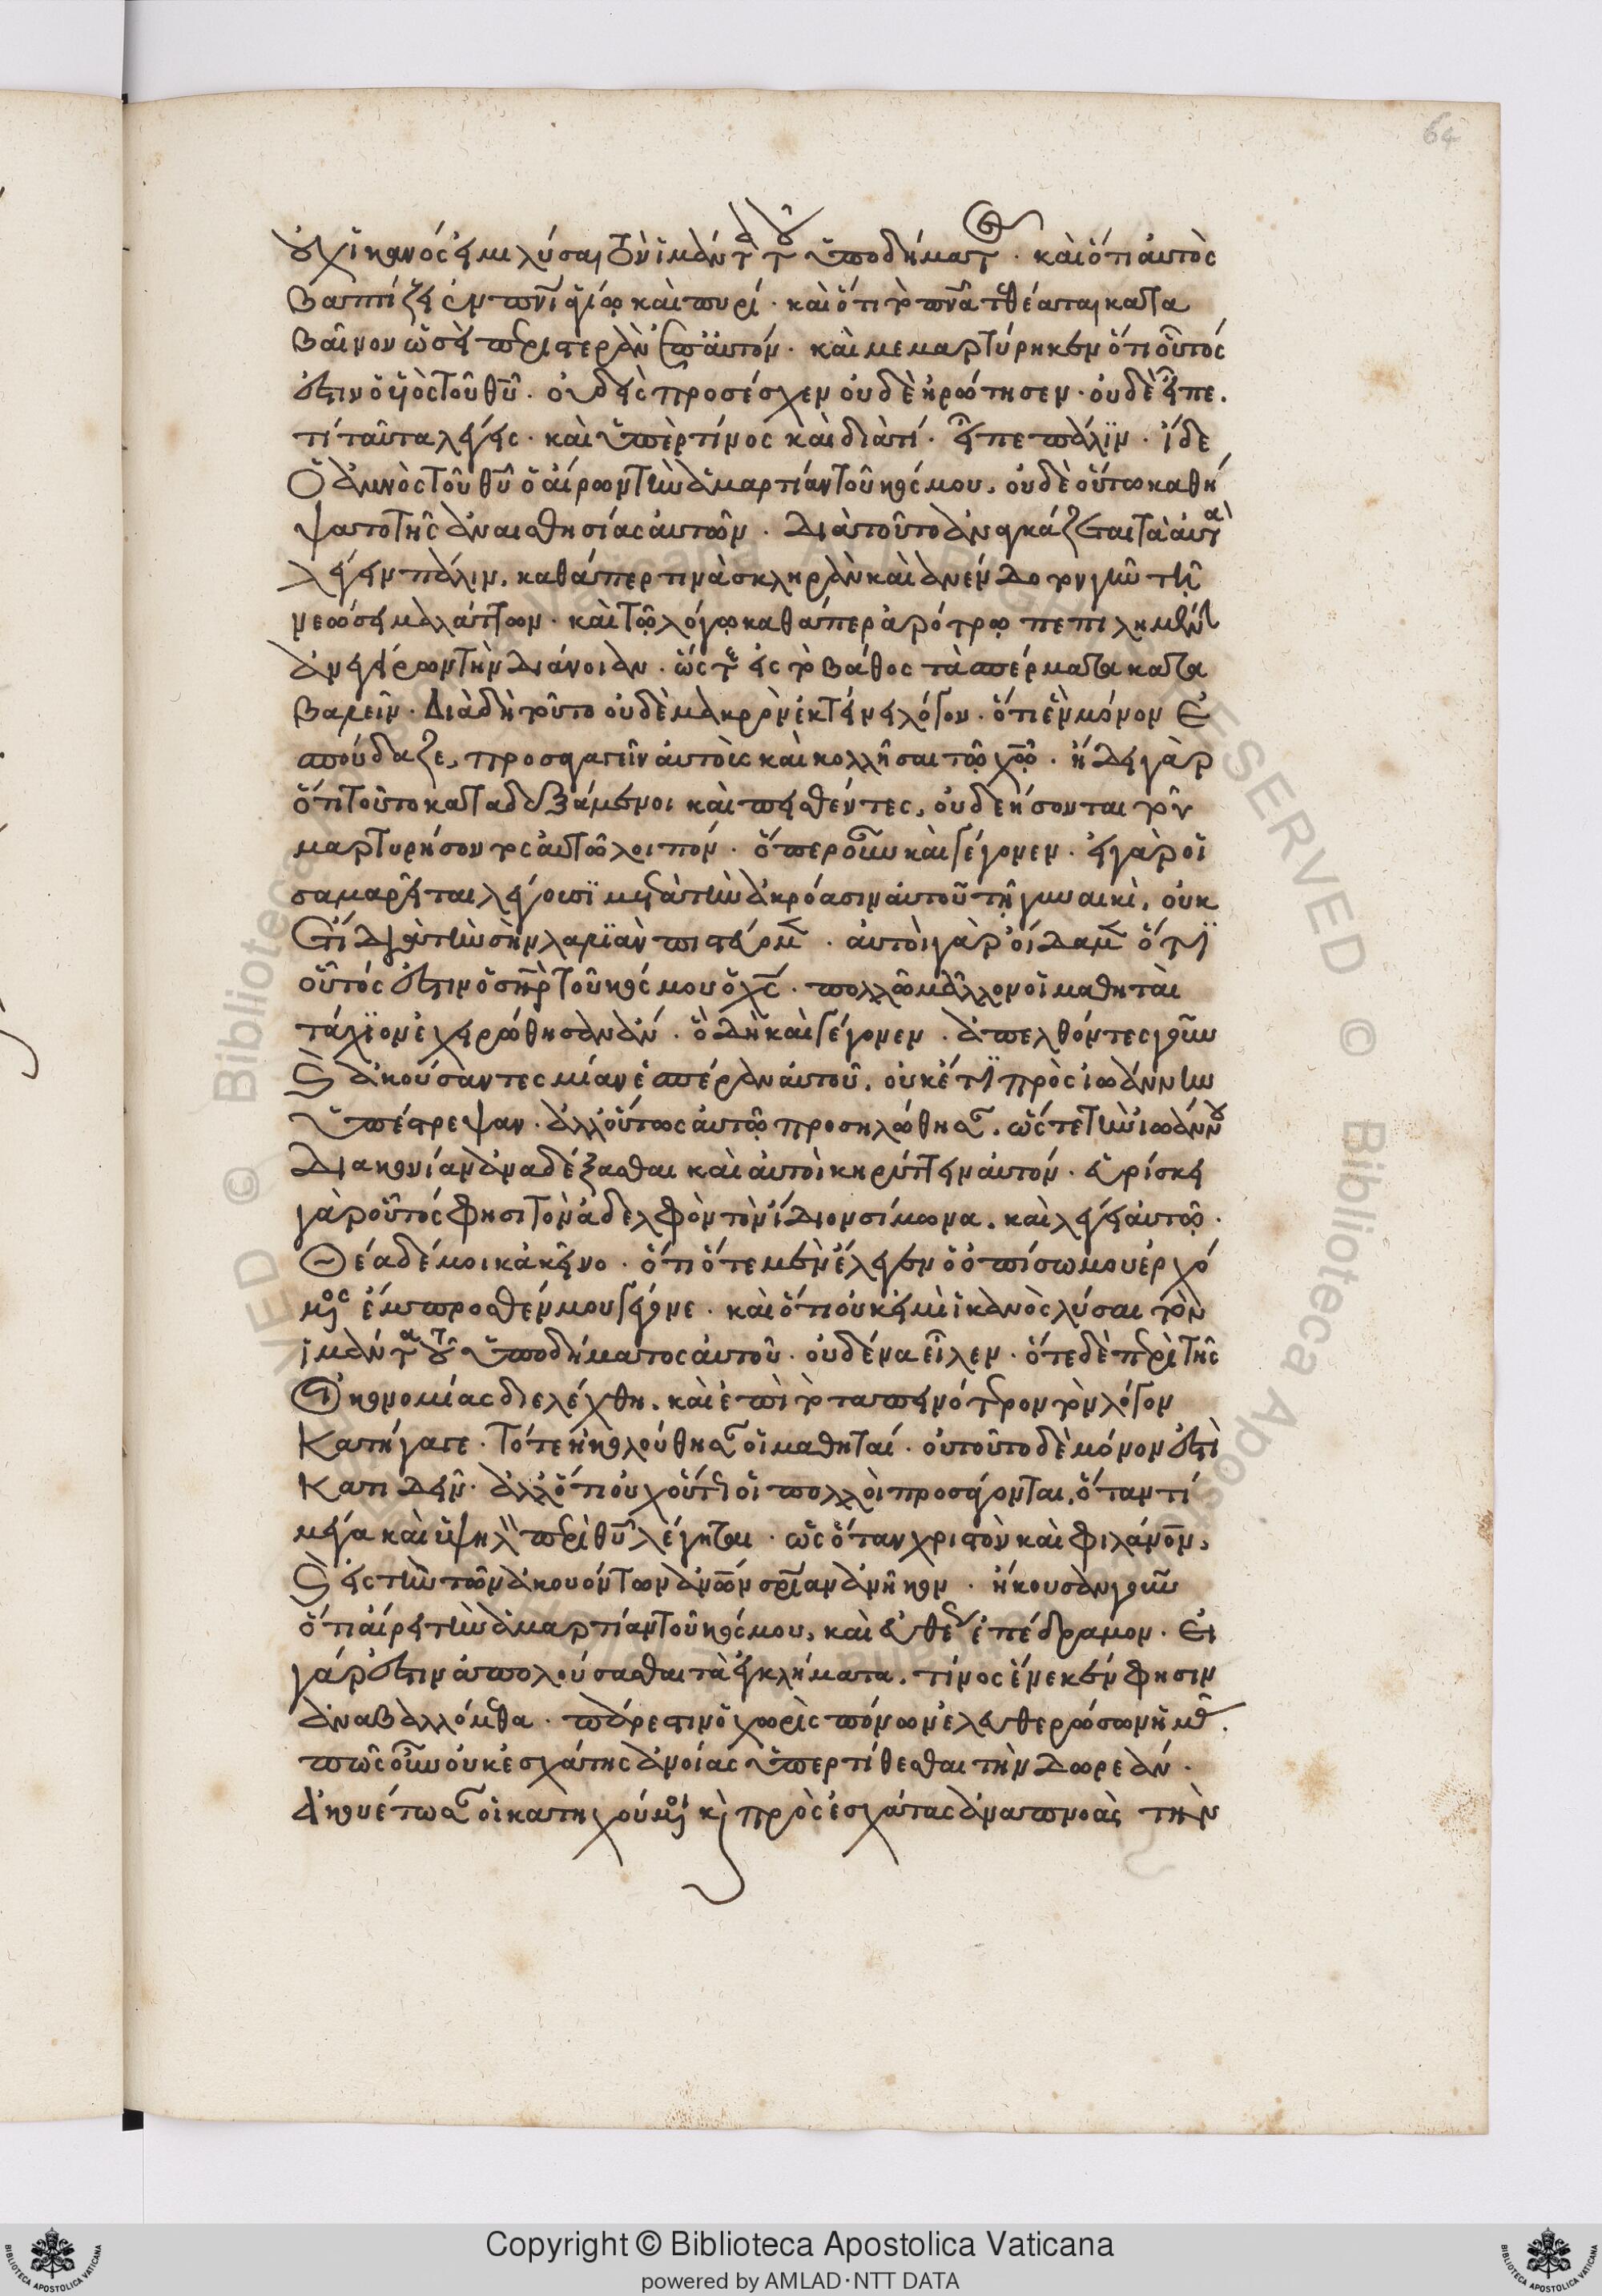 64
οὐχ ἱκανός εἰμι λύσαι τὸν ἱμάντα τοῦ ὑποδήματος · καὶ ὅτι αὐτὸς
βαπτίζει ἐν πνι ἁγίω καὶ πυρί · καὶ ὅτι τὸ πνα τεθέαται κατα
βαῖνον ὡσεὶ περιστερὰν ἐπ' αὐτόν · καὶ μεμαρτύρηκεν ὅτι οὗτός
ἐστιν ὁ υἱὸς τοῦ θυ · οὐδεὶς προσέσχεν οὐδὲ ἠρώτησεν · οὐδὲ εἶπε.
τί ταῦτα λέγεις · καὶ ὑπὲρ τίνος καὶ διατί · εἶπε πάλιν · ἴδε
ὁ ἀμνὸς τοῦ θυ ὁ αἴρων τὴν ἁμαρτίαν τοῦ κόσμου, οὐδὲ οὕτω καθή
ψατο τῆς ἀναισθησίας αὐτῶν · διατοῦτο ἀναγκάζεται τὰ αὐτὰ
λέγειν πάλιν, καθάπερ τινὰ σκληρὰν καὶ ἀνένδοτον γῆν τῆ
νεώσει μαλάττων · καὶ τῶ λόγω καθάπερ ἀρότρω πεπιλημένην
ἀνεγείρων τὴν διάνοιαν · ὥστε εἰς τὸ βάθος τὰ σπέρματα κατα
βαλεῖν · Διὰ δὴ τοῦτο οὐδὲ μακρὸν ἐκτείνει λόγον · ὅτι ἓν μόνον ἐ
σπούδαζε, προσαγαγεῖν αὐτοὺς καὶ κολλῆσαι τῶ χῶ · ἤδει γὰρ
ὅτι τοῦτο καταδεξάμενοι καὶ πεισθέντες, οὐ δεήσονται τοῦ
μαρτυρήσοντος αὐτῶ λοιπόν · ὅπερ οὖν καὶ γέγονεν · εἰ γὰρ οἱ
σαμαρεῖται λέγουσι μετὰ τὴν ἀκρόασιν αὐτοῦ τῆ γυναικὶ, οὐκ
ἔτι διὰ τὴν σὴν λαλιὰν πιστεύομεν · αὐτοὶ γὰρ οἴδαμεν ὅτι
οὗτός ἐστιν ὁ σηρ τοῦ κόσμου ὁ χς · πολλῶ μᾶλλον οἱ μαθηταὶ
τάχιον ἐχειρώθησαν ἄν · ὃ δὴ καὶ γέγονεν · ἀπελθόντες γοῦν
καὶ ἀκούσαντες μίαν ἑσπέραν αὐτοῦ, οὐκέτι πρὸς ἰωάννην
ὑπέστρεψαν · ἀλλ' οὕτως αὐτῶ προσηλώθησαν, ὥστε τὴν ἰωάννου
διακονίαν ἀναδέξασθαι καὶ αὐτοὶ κηρύττειν αὐτόν · εὑρίσκει
γὰρ οὗτός φησι τὸν ἀδελφὸν τὸν ἴδιον σίμωνα, καὶ λέγει αὐτῶ ·
Θέα δέ μοι κἀκεῖνο · ὅτι ὅτε μὲν ἔλεγεν ὁ ὀπίσω μου ἐρχό
μενος ἔμπροσθέν μου γέγονε · καὶ ὅτι οὐκ εἰμὶ ἱκανὸς λύσαι τὸν
ἱμάντα τοῦ ὑποδήματος αὐτοῦ · οὐδένα εἷλεν · ὅτε δὲ περὶ τῆς
οἰκονομίας διελέχθη, καὶ ἐπὶ τὸ ταπεινότερον τὸν λόγον
κατήγαγε · τότε ἠκολούθησαν οἱ μαθηταί · οὐ τοῦτο δὲ μόνον ἐστὶ
κατιδεῖν · ἀλλ' ὅτι οὐχ οὕτως οἱ πολλοὶ προσάγονται, ὅταν τί
μέγα καὶ ὑψηλὸν περὶ θυ λέγηται · ὡς ὅταν χρηστὸν καὶ φιλάνον,
καὶ εἰς τὴν τῶν ἀκουόντων ἀνων σρίαν ἀνῆκον · ἤκουσαν γοῦν
ὅτι αἴρει τὴν ἁμαρτίαν τοῦ κόσμου, καὶ εὐθέως ἐπέδραμον · εἰ
γάρ ἐστιν ἀπολούσασθαι τὰ ἐγκλήματα, τίνος ἕνεκέν φησιν
ἀναβαλλόμεθα · πάρεστιν ὁ χωρὶς πόνων ἐλευθερώσων ἡμᾶς.
πῶς οὖν οὐκ ἐσχάτης ἀνοίας ὑπερτίθεσθαι τὴν δωρεάν ·
ἀκουέτωσαν οἱ κατηχούμενοι καὶ πρὸς ἐσχάτας ἀναπνοὰς τὴν
Copyright © Biblioteca Apostolica Vaticana
powered by AMLAD·NTT DATA